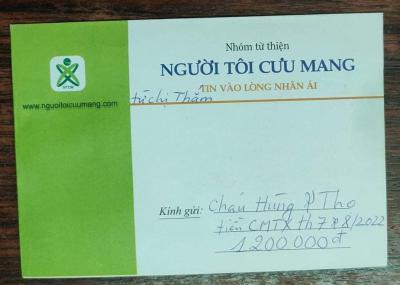 Nhóm từ thiện
NGƯỜI TÔI CƯU MANG
TIN VÀO LÒNG NHÂN ÁI
từ chị Thắm
NTCM
www.nguoitoicuumang.com
Kính gửi: Cháu Hùng P Thọ
tiền CMTX th 7+8/2022
1200.000đ